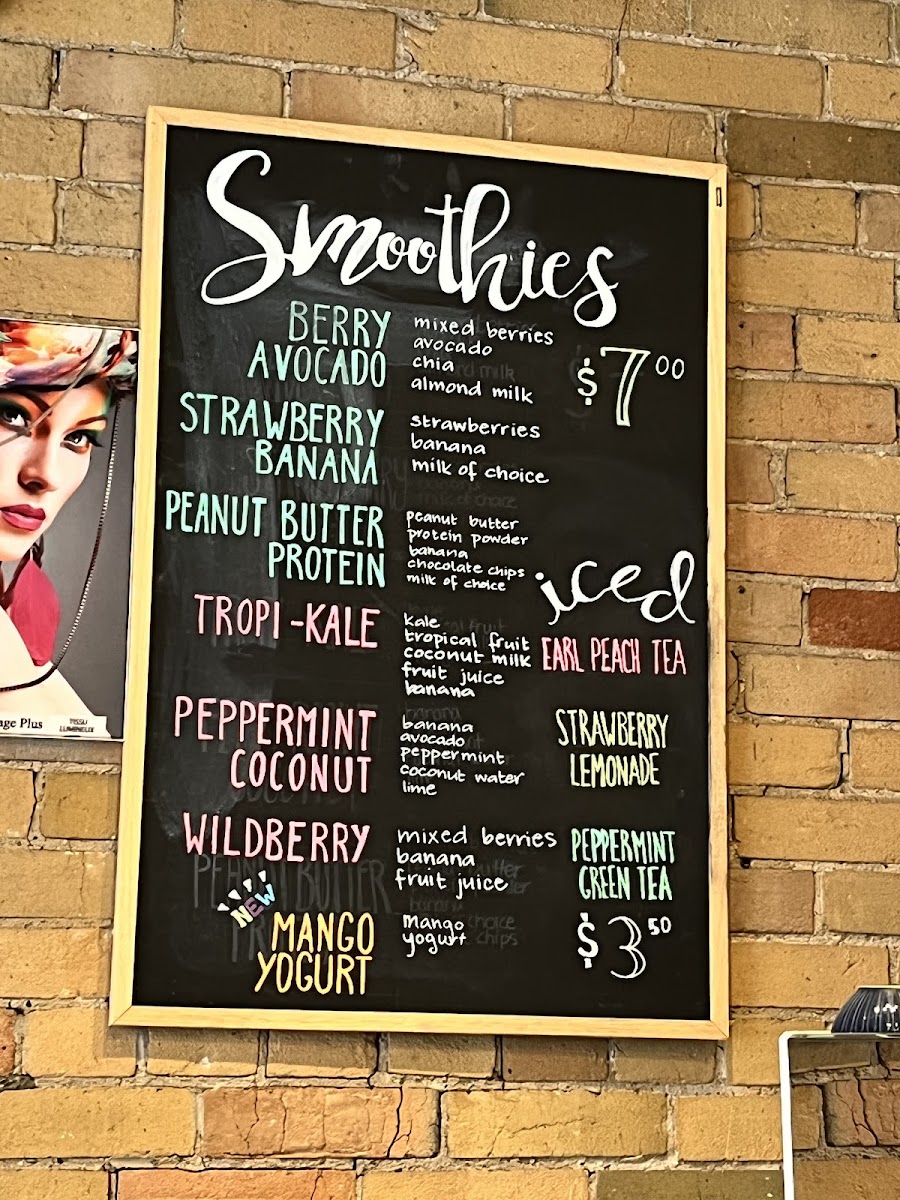 Smoothies
BERRY
AVOCADO
mixed berries
avocado
chia
almond milk
$7.00
STRAWBERRY
BANANA
strawberries
banana
milk of choice
PEANUT BUTTER
PROTEIN
peanut butter
protein powder
banana
chocolate chips
milk of choice
TROPI-KALE
kale
tropical fruit
coconut milk
fruit juice
banana
PEPPERMINT
COCONUT
banana
avocado
peppermint
coconut water
lime
WILDBERRY
mixed berries
banana
fruit juice
NEW
MANGO
YOGURT
mango
yogurt
iced
EARL PEACH TEA
STRAWBERRY
LEMONADE
PEPPERMINT
GREEN TEA
$3.50
age Plus